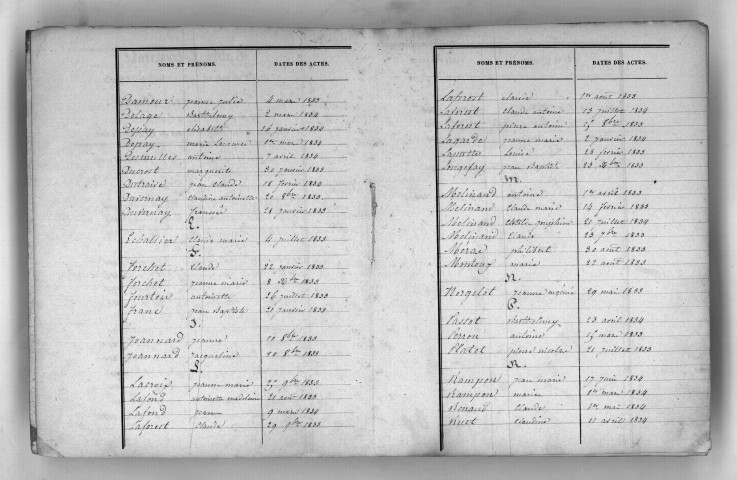 NOMS ET PRÉNOMS. DATES DES ACTES.
Damour jeanne julie 4 mars 1833
Delage Barthelemy 2 mars 1834
Depay elisabeth 16 janvier 1834
Depay marie 1er mars 1834
Desmilles antoine 7 avril 1834
Ducrost marguerite 30 janvier 1833
Dutraive jean claude 18 fevrier 1834
Duvernay claudine antoinette 20 8bre 1833
Duvernay francois 28 janvier 1833
E.
Echallier claude marie 4 juillet 1833
F.
Forchet claude 22 janvier 1833
Forchet jeanne marie 8 Xbre 1833
fourtois antoinette 26 juillet 1833
franc jean Baptiste 21 janvier 1833
J.
Joannard jeanne 10 8bre 1833
Joannard jacqueline 20 8bre 1833
L.
Lacroix jeanne marie 25 9bre 1833
Lafond antoinette madelaine 21 août 1833
Lafond jean 9 mars 1834
Laforest claude 29 9bre 1833
NOMS ET PRÉNOMS. DATES DES ACTES.
Laforest claude 1er août 1833
Laforest claude antoine 13 juillet 1834
Laforest pierre antoine 15 8bre 1833
Lagarde jeanne marie 2 janvier 1834
Lamotte louise 23 fevrier 1833
Longefay jean Baptiste 23 Xbre 1833
M.
Melinand antoine 1er avril 1833
Melinand claude marie 14 fevrier 1833
Melinand clotilde josephine 21 juillet 1834
Melinand claude 23 7bre 1833
Mérac philibert 30 août 1833
Montoux marie 22 août 1833
N.
Norgelet jeanne eugénie 29 mai 1833
P.
Passot Barthelemy 23 avril 1834
Perron antoine 15 mars 1833
Platet pierre nicolas 21 juillet 1833
R.
Rampon jean marie 17 juin 1834
Rampon marie 1er mars 1834
Renard claude 1er mai 1834
Ruet claudine 11 avril 1834